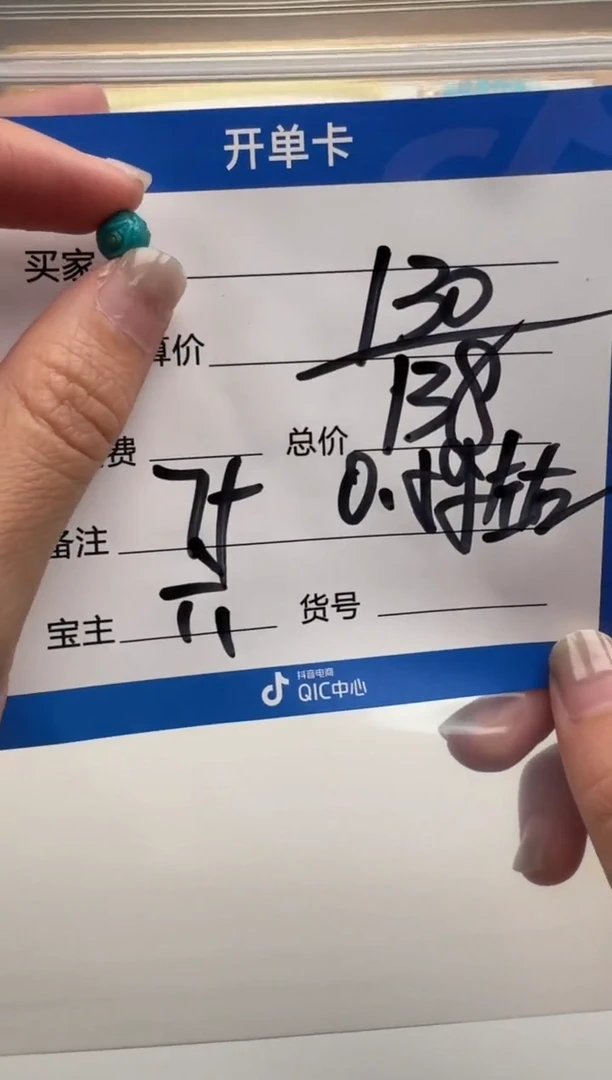 开单卡
买家
130
算价
138
费
总价
0.49
备注
宝主
11
货号
抖音电商
QIC中心